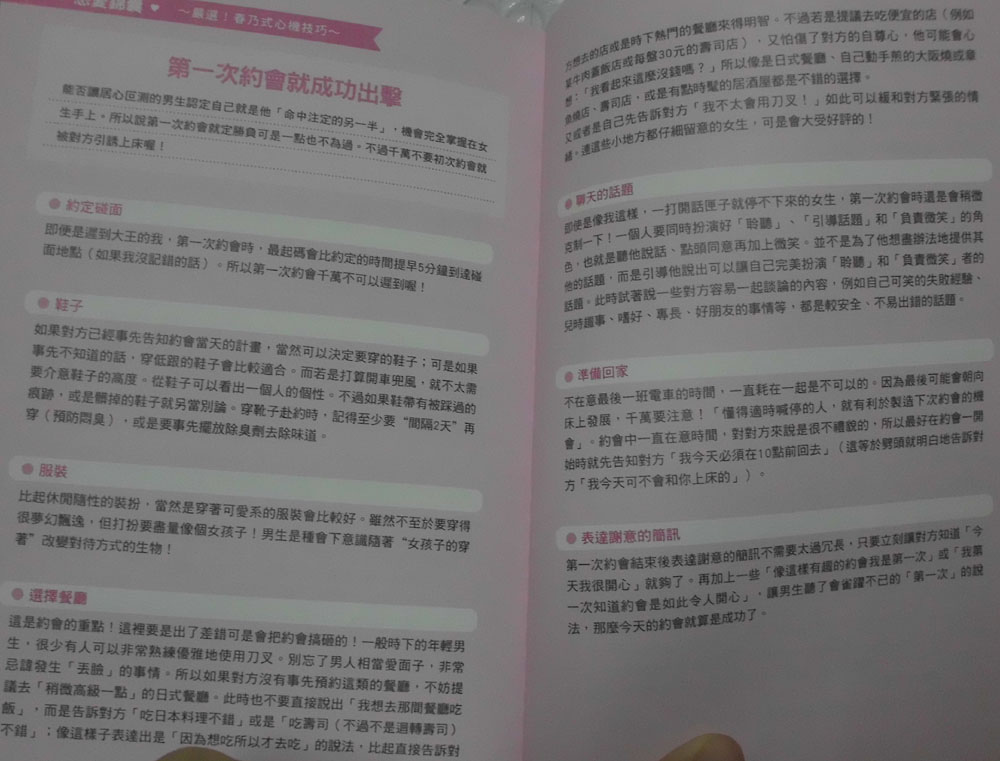 戀愛錦囊 ♥ ～嚴選！春乃式心機技巧～
第一次約會就成功出擊
能否讓居心叵測的男生認定自己就是他「命中注定的另一半」，機會完全掌握在女
生手上。所以說第一次約會就定勝負可是一點也不為過。不過千萬不要初次約會就
被對方引誘上床喔！
● 約定碰面
即便是遲到大王的我，第一次約會時，最起碼會比約定的時間提早5分鐘到達碰
面地點（如果我沒記錯的話）。所以第一次約會千萬不可以遲到喔！
● 鞋子
如果對方已經事先告知約會當天的計畫，當然可以決定要穿的鞋子；可是如果
事先不知道的話，穿低跟的鞋子會比較適合。而若是打算開車兜風，就不太需
要介意鞋子的高度。從鞋子可以看出一個人的個性。不過如果鞋帶有被踩過的
痕跡，或是髒掉的鞋子就另當別論。穿靴子赴約時，記得至少要“間隔2天”再
穿（預防悶臭），或是要事先擺放除臭劑去除味道。
● 服裝
比起休閒隨性的裝扮，當然是穿著可愛系的服裝會比較好。雖然不至於要穿得
很夢幻飄逸，但打扮要盡量像個女孩子！男生是種會下意識隨著“女孩子的穿
著”改變對待方式的生物！
● 選擇餐廳
這是約會的重點！這裡要是出了差錯可是會把約會搞砸的！一般時下的年輕男
生，很少有人可以非常熟練優雅地使用刀叉。別忘了男人相當愛面子，非常
忌諱發生「丟臉」的事情。所以如果對方沒有事先預約這類的餐廳，不妨提
議去「稍微高級一點」的日式餐廳。此時也不要直接說出「我想去那間餐廳吃
飯」，而是告訴對方「吃日本料理不錯」或是「吃壽司（不過不是迴轉壽司）
不錯」；像這樣子表達出是「因為想吃所以才去吃」的說法，比起直接告訴對
方想去的店或是時下熱門的餐廳來得明智。不過若是提議去吃便宜的店（例如
某牛肉蓋飯店或每盤30元的壽司店），又怕傷了對方的自尊心，他可能會心
想：「我看起來這麼沒錢嗎？」所以像是日式餐廳、自己動手煎的大阪燒或章
魚燒店、壽司店、或是有點時髦的居酒屋都是不錯的選擇。
又或者是自己先告訴對方「我不太會用刀叉！」如此可以緩和對方緊張的情
緒。連這些小地方都仔細留意的女生，可是會大受好評的！
● 聊天的話題
即便是像我這樣，一打開話匣子就停不下來的女生，第一次約會時還是會稍微
克制一下！一個人要同時扮演好「聆聽」、「引導話題」和「負責微笑」的角
色，也就是聽他說話、點頭同意再加上微笑。並不是為了他想盡辦法地提供其
他的話題，而是引導他說出可以讓自己完美扮演「聆聽」和「負責微笑」者的
話題。此時試著說一些對方容易一起談論的內容，例如自己可笑的失敗經驗、
兒時趣事、嗜好、專長、好朋友的事情等，都是較安全、不易出錯的話題。
● 準備回家
不在意最後一班電車的時間，一直耗在一起是不可以的。因為最後可能會朝向
床上發展，千萬要注意！「懂得適時喊停的人，就有利於製造下次約會的機
會」。約會中一直在意時間，對對方來說是很不禮貌的，所以最好在約會一開
始時就先告知對方「我今天必須在10點前回去」（這等於劈頭就明白地告訴對
方「我今天可不會和你上床的」）。
● 表達謝意的簡訊
第一次約會結束後表達謝意的簡訊不需要太過冗長，只要立刻讓對方知道「今
天我很開心」就夠了。再加上一些「像這樣有趣的約會我是第一次」或「我第
一次知道約會是如此令人開心」，讓男生聽了會雀躍不已的「第一次」的說
法，那麼今天的約會就算是成功了。